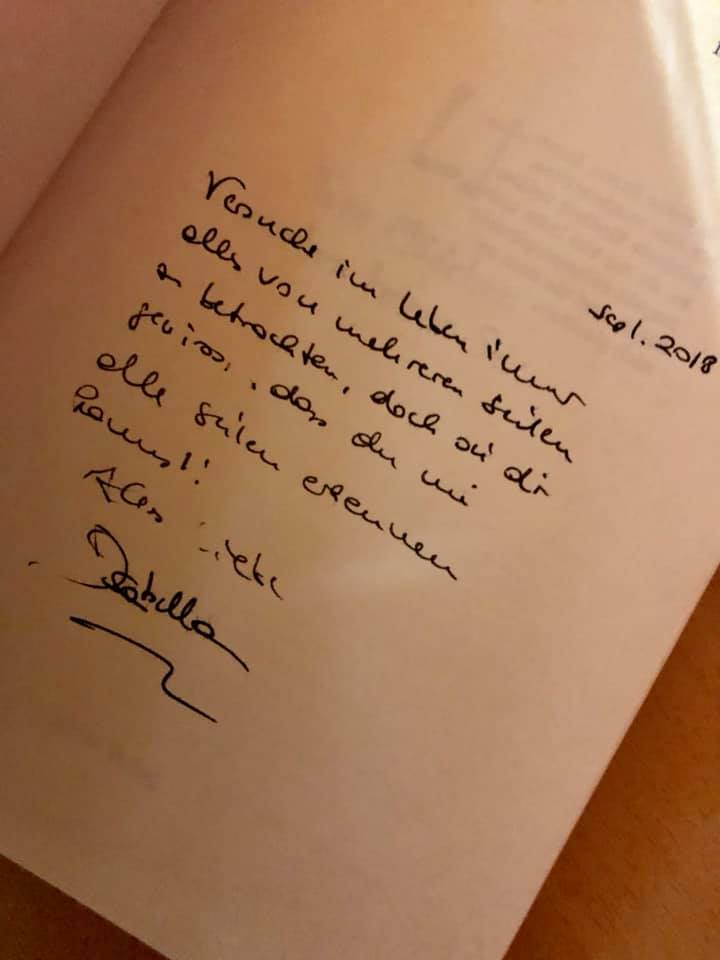 Sept. 2018
Versuche im Leben immer
alles von mehreren Seiten
zu betrachten, doch sei dir
gewiss, dass du nie
alle Seiten erkennen
kannst!
Alles Liebe
Isabella